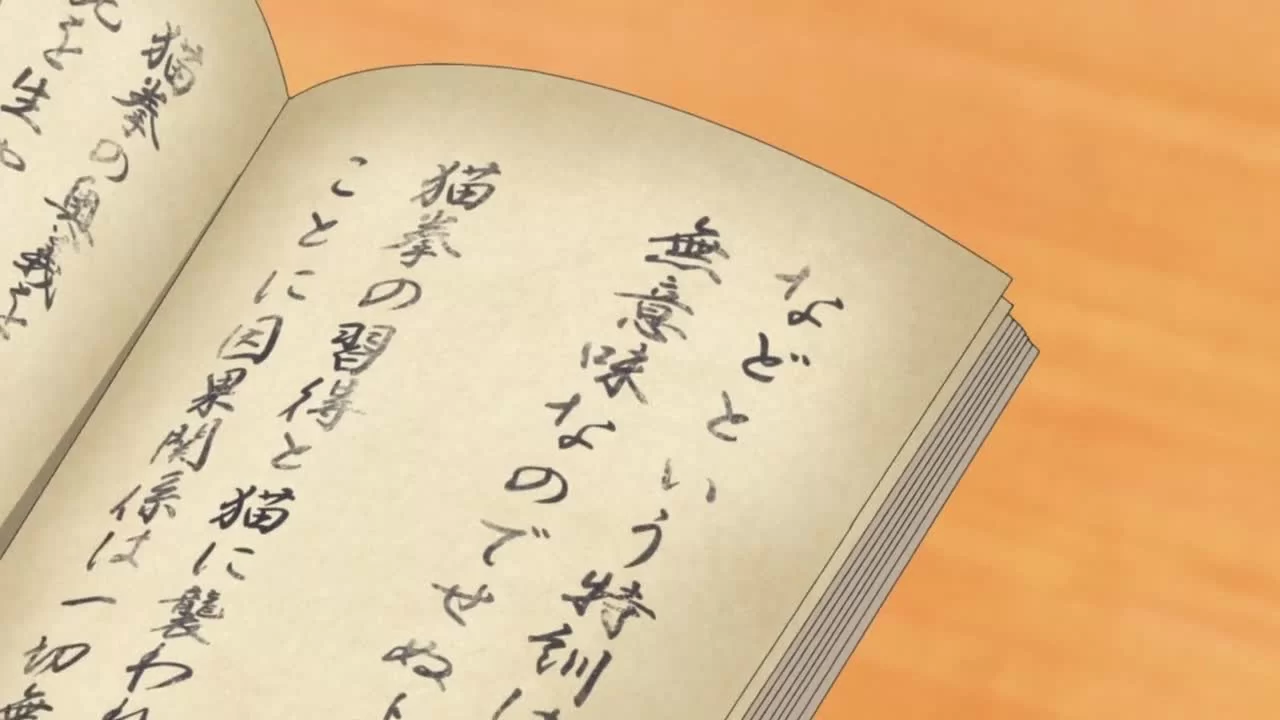 などという特訓は
無意味なのでせぬ
猫拳の習得と猫に襲われ
ことに因果関係は一切無
猫拳の奥義